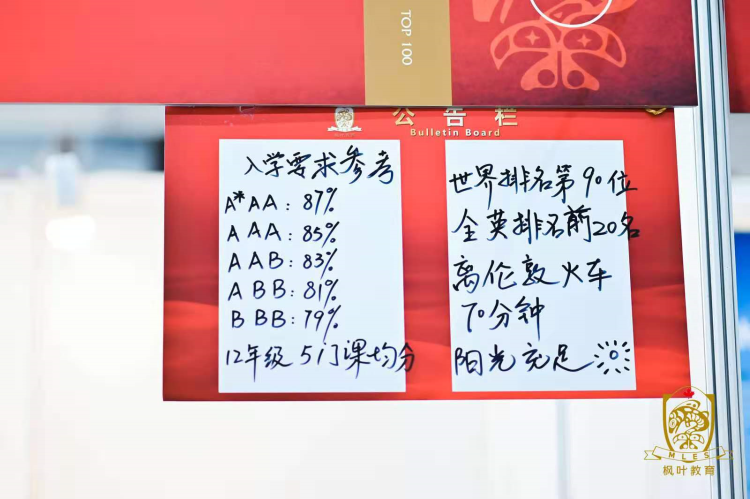 TOP 100
公告栏
Bulletin Board
入学要求参考
A*AA: 87%
AAA: 85%
AAB: 83%
ABB: 81%
BBB: 79%
12年级5门课均分
世界排名第90位
全英排名前20名
离伦敦火车
70分钟
阳光充足
MLES
枫叶教育